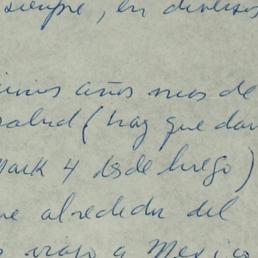 siempre, en diversos
años mas de
salud (hay que dar
Mark 4 desde luego)
alrededor del
viaje a Mexico